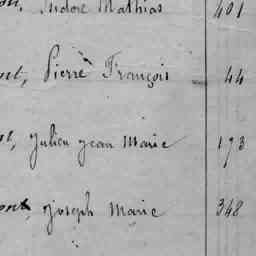 Isidore Mathias 401
Pierre François 44
Julien Jean Marie 173
Joseph Marie 348